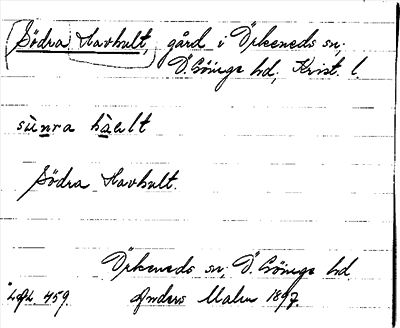 (Södra Havhult, gård i Örkeneds sn,
Ö. Göinge hd, Krist. l.
sùnra hàalt
Södra Havhult.
Örkeneds sn, Ö. Göinge hd.
459. Anders Malm 1897.